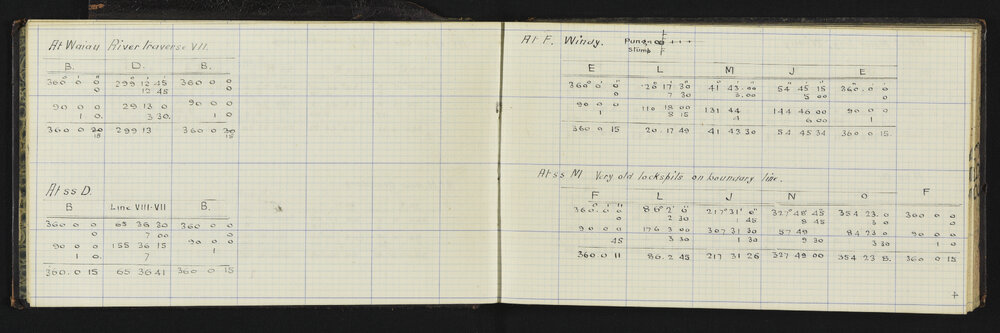 At Waiau River traverse VII.
B. D. B.
360° 0' 0" 299 12 45 360 0 0
0 12 45 0
90 0 0 29 13 0 90 0 0
1 0. 3 30. 1 0
360 0 20 299 13 360 0 30
15 15
At ss D.
B Line VIII-VII B.
360 0 0 65 36 30 360 0 0
0 7 00 0
90 0 0 155 36 15 90 0 0
1 0. 7 1
360. 0 15 65 36 41 360 0 15
At F. Windy. Punga
Stump
E L M J E
360° 0' 0" 20 17 30 41 43.00 54 45 15 360. 0. 0
0 7 30 3.00 5 00 0
90 0 0 110 18 00 131 44 144 46 00 90 0 0
1 8 15 4 6 00 1
360 0 15 20. 17 49 41 43 30 54 45 34 360 0 15.
At ss M Very old lockspits on boundary line.
F L J N O F
360. 0. 0 86° 2' 0" 217° 31' 0" 327° 48' 45 354 23. 0 360 0 0
0 2 30 45 8 45 3 0 0
90 0 0 176 3 00 307 31 30 57 49 84 23 0 90 0 0
45 3 30 1 30 9 30 3 30 1 0
360 0 11 86. 2 45 217 31 26 327 49 00 354 23 8. 360 0 15
4